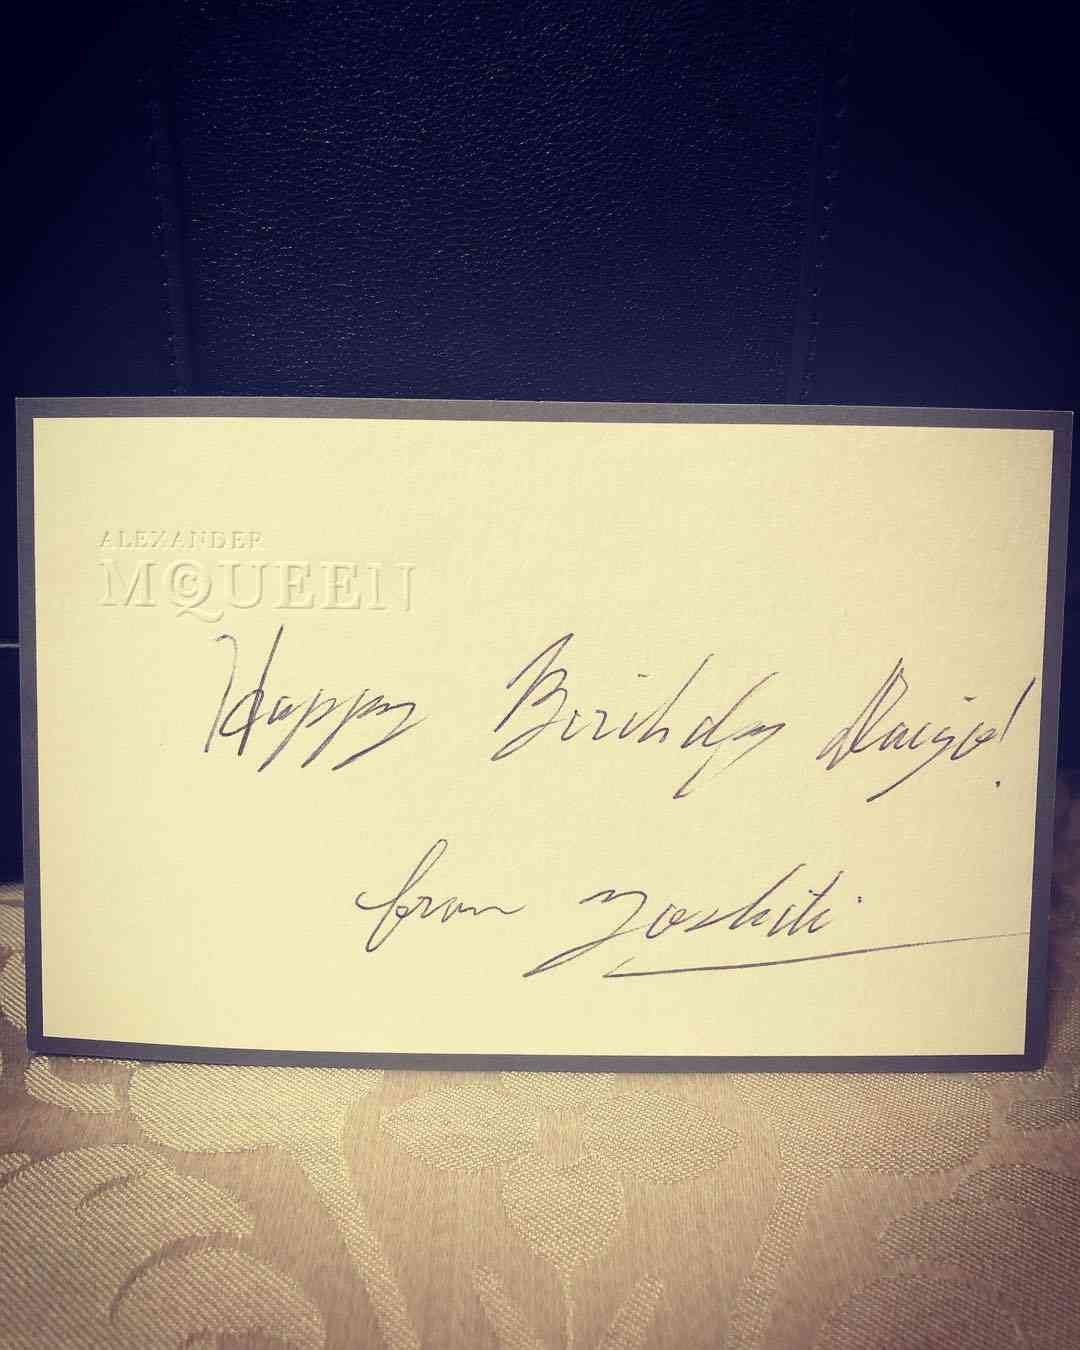 ALEXANDER
McQUEEN
Happy Birthday Daigo!
from Yoshiki